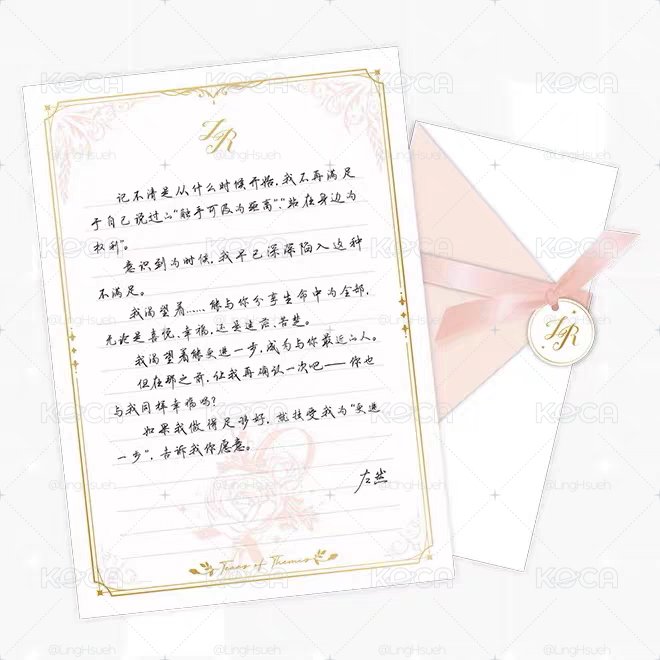 JR
记不清是从什么时候开始,我不再满足
于自己说过的“触手可及的距离”、“站在身边的
权利”。
意识到的时候,我早已深深陷入这种
不满足。
我渴望着……能与你分享生命中的全部,
无论是喜悦、幸福,还是迷茫、苦楚。
我渴望着能更进一步,成为与你最近的人。
但在那之前,让我再确认一次吧——你也
与我同样幸福吗?
如果我做得足够好,就接受我的“更进
一步”,告诉我你愿意。
左然
Tears of Themis
JR
KOCA
@LingHsueh